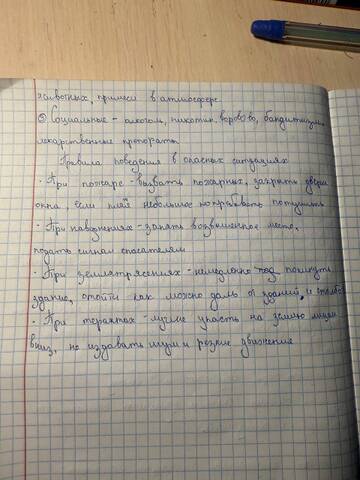 животных, примеси в атмосфере
⑤ Социальные - алкоголь, никотин, воровство, бандитизм,
лекарственные препораты
Правила поведения в опасных ситуациях
· При пожаре - вызвать пожарных, закрыть двери
окна, если плая небольшое попробовать потушить
· При наводнениях - занять возвышенное место,
подать сигнал спасателям
· При землятресениях - немедленно покинуть
здание, отойти как можно даль от зданий, и столбов
· При терактах - лучше упасть на землю лицом
вниз, не издавать шум и резкие движения